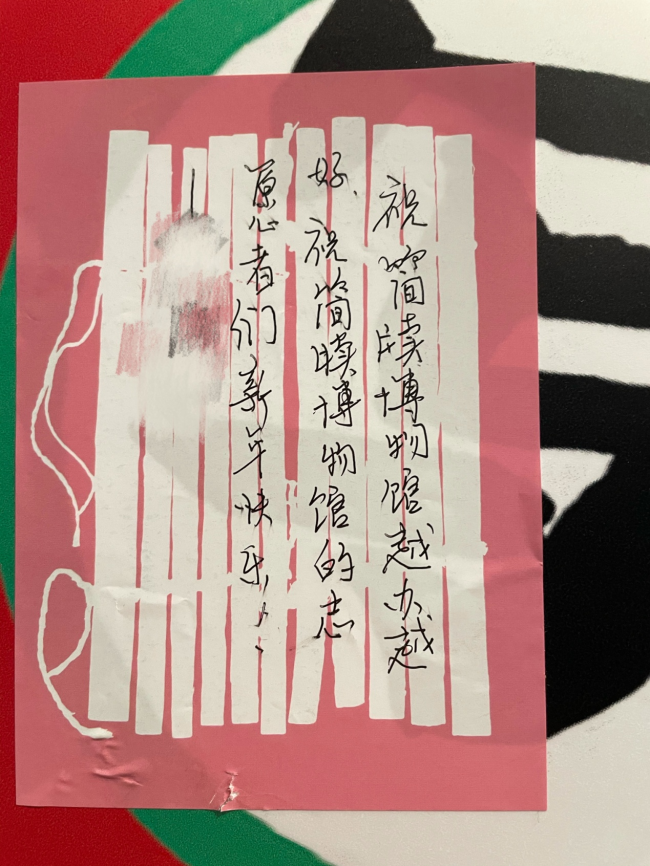 祝简牍博物馆越办越
好、祝简牍博物馆的志
愿心者们新年快乐!、